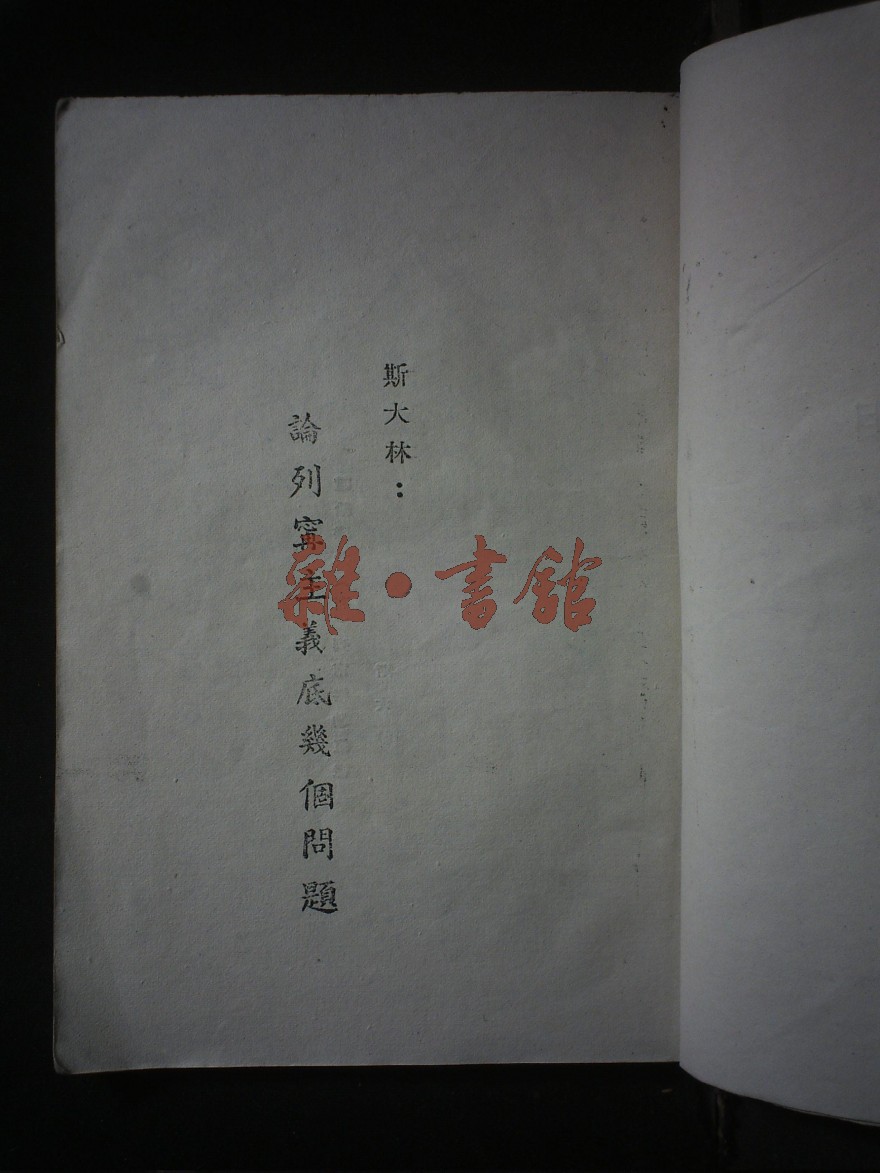 斯大林：
論列寧主義底幾個問題
雜·書館